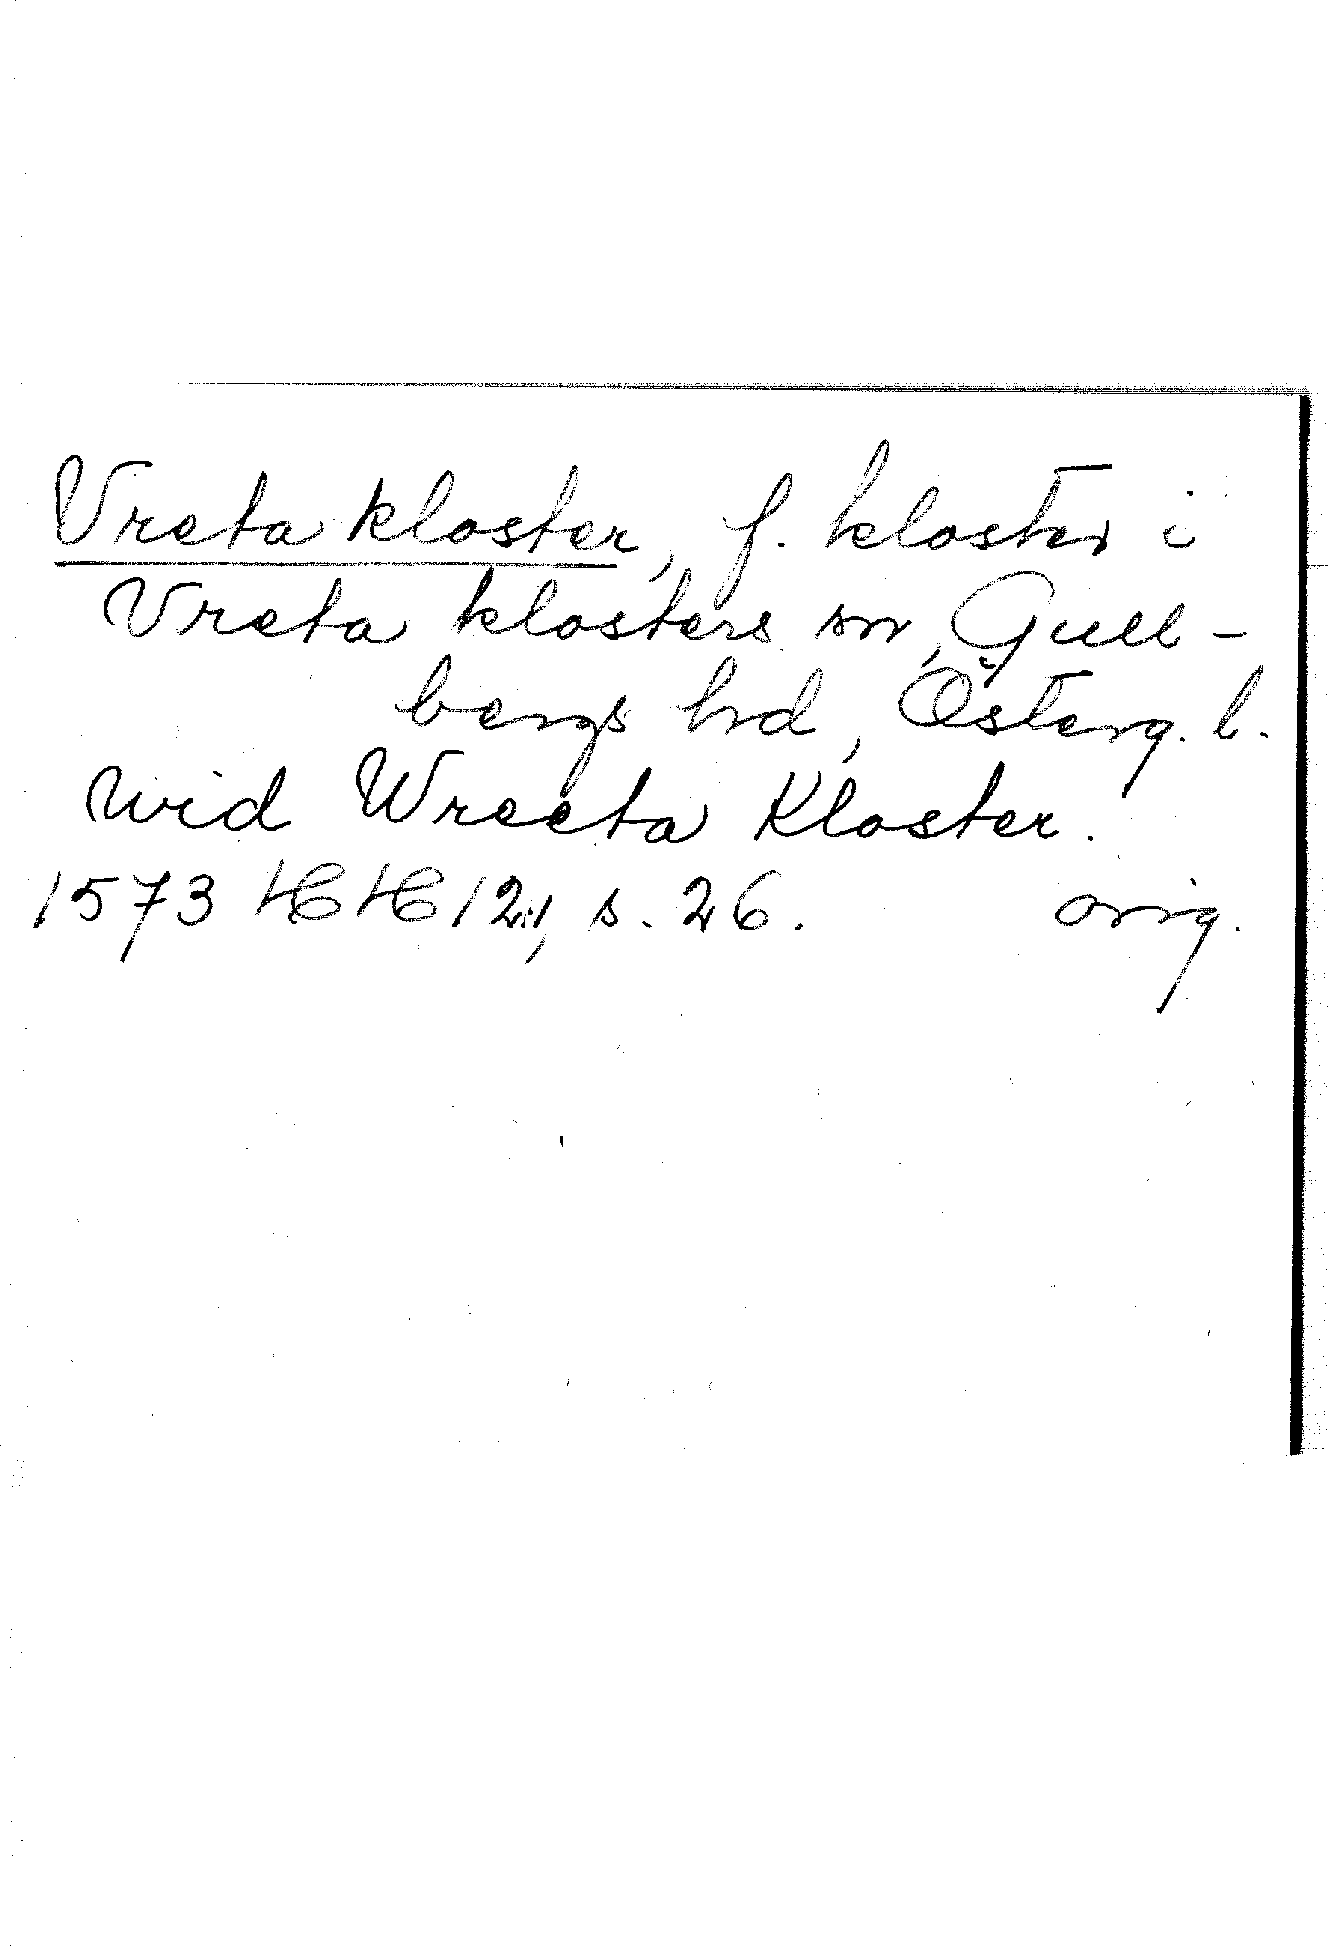 Vreta kloster, f. kloster i
Vreta klosters sn, Gull-
bergs hd, Österg. l.
wid Wreeta Kloster.
1573 HH 12:1, s. 26. orig.